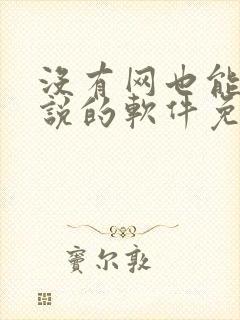 没有网也能
說的軟件免
寶尔敦